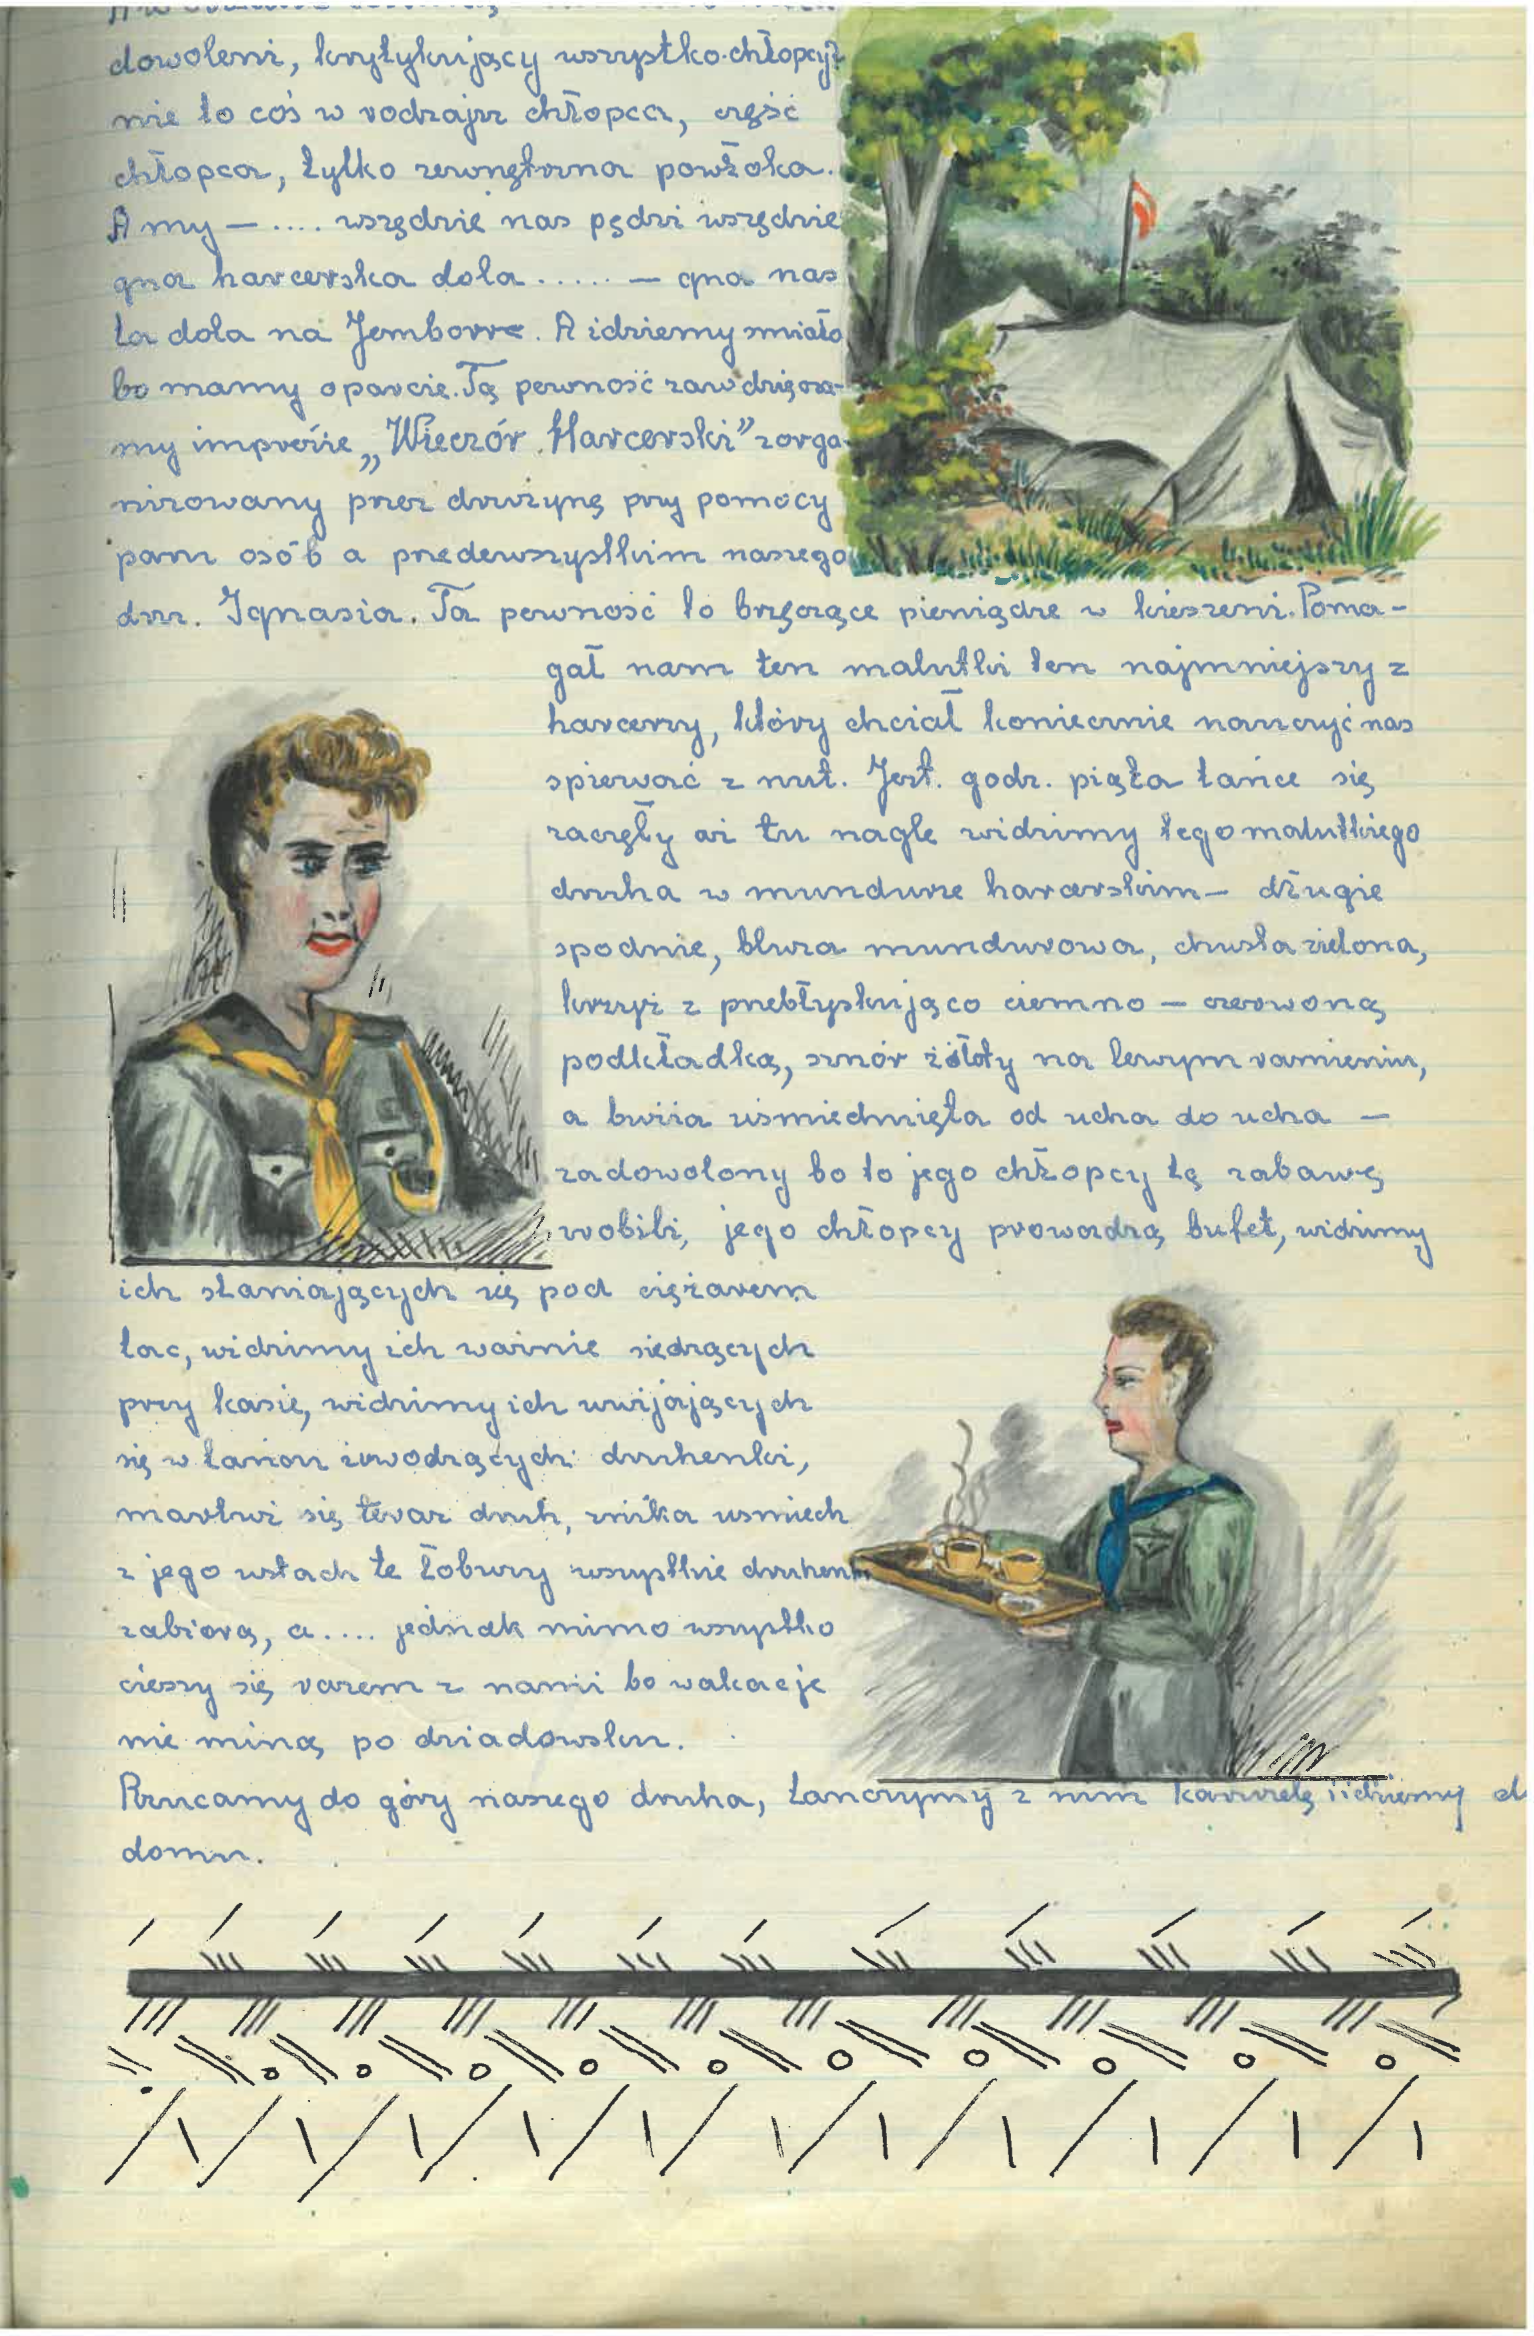 dowoleni, krytykujący wszystko. chłopcy?
nie to coś w rodzaju chłopca, część
chłopca, tylko zewnętrzna powłoka.
A my – .... wszędzie nas pędzi wszędzie
gna harcerska dola ...... – gna nas
ta dola na Jemborre. A idziemy smiało
bo mamy oparcie. Tą pewność zawdzięcza-
my imprezie „Wieczór Harcerski" zorga-
nizowany przez drużynę przy pomocy
paru osób a przedewszystkim naszego
dru. Ignasia. Ta pewność to brzęczące pieniądze w kieszeni. Poma-
gał nam ten malutki ten najmniejszy z
harcerzy, który chciał koniecznie nauczyć nas
spiewać z nut. Jest. godz. piąta tańce się
zaczęły aż tu nagle widzimy tego malutkiego
druha w mundurze harcerskim – długie
spodnie, bluza mundurowa, chusta zielona,
krzyż z przebłyskująco ciemno – czerwoną
podkładką, sznór żółty na lewym ramieniu,
a buzia uśmiechnięta od ucha do ucha –
zadowolony bo to jego chłopcy tą zabawę
robili, jego chłopcy prowadzą bufet, widzimy
ich słaniających się pod ciężarem
tac, widzimy ich ważnie siedzących
przy kasie, widzimy ich uwijających
się w tańcu zwodzących druhenki,
martwi się teraz druh, znika usmiech
z jego ustach te łobuzy wszystkie druhenki
zabiorą, a .... jednak mimo wszystko
cieszy się razem z nami bo wakacje
nie miną po dziadowsku.
Rzucamy do góry naszego druha, tańczymy z nim i idziemy d
domu.